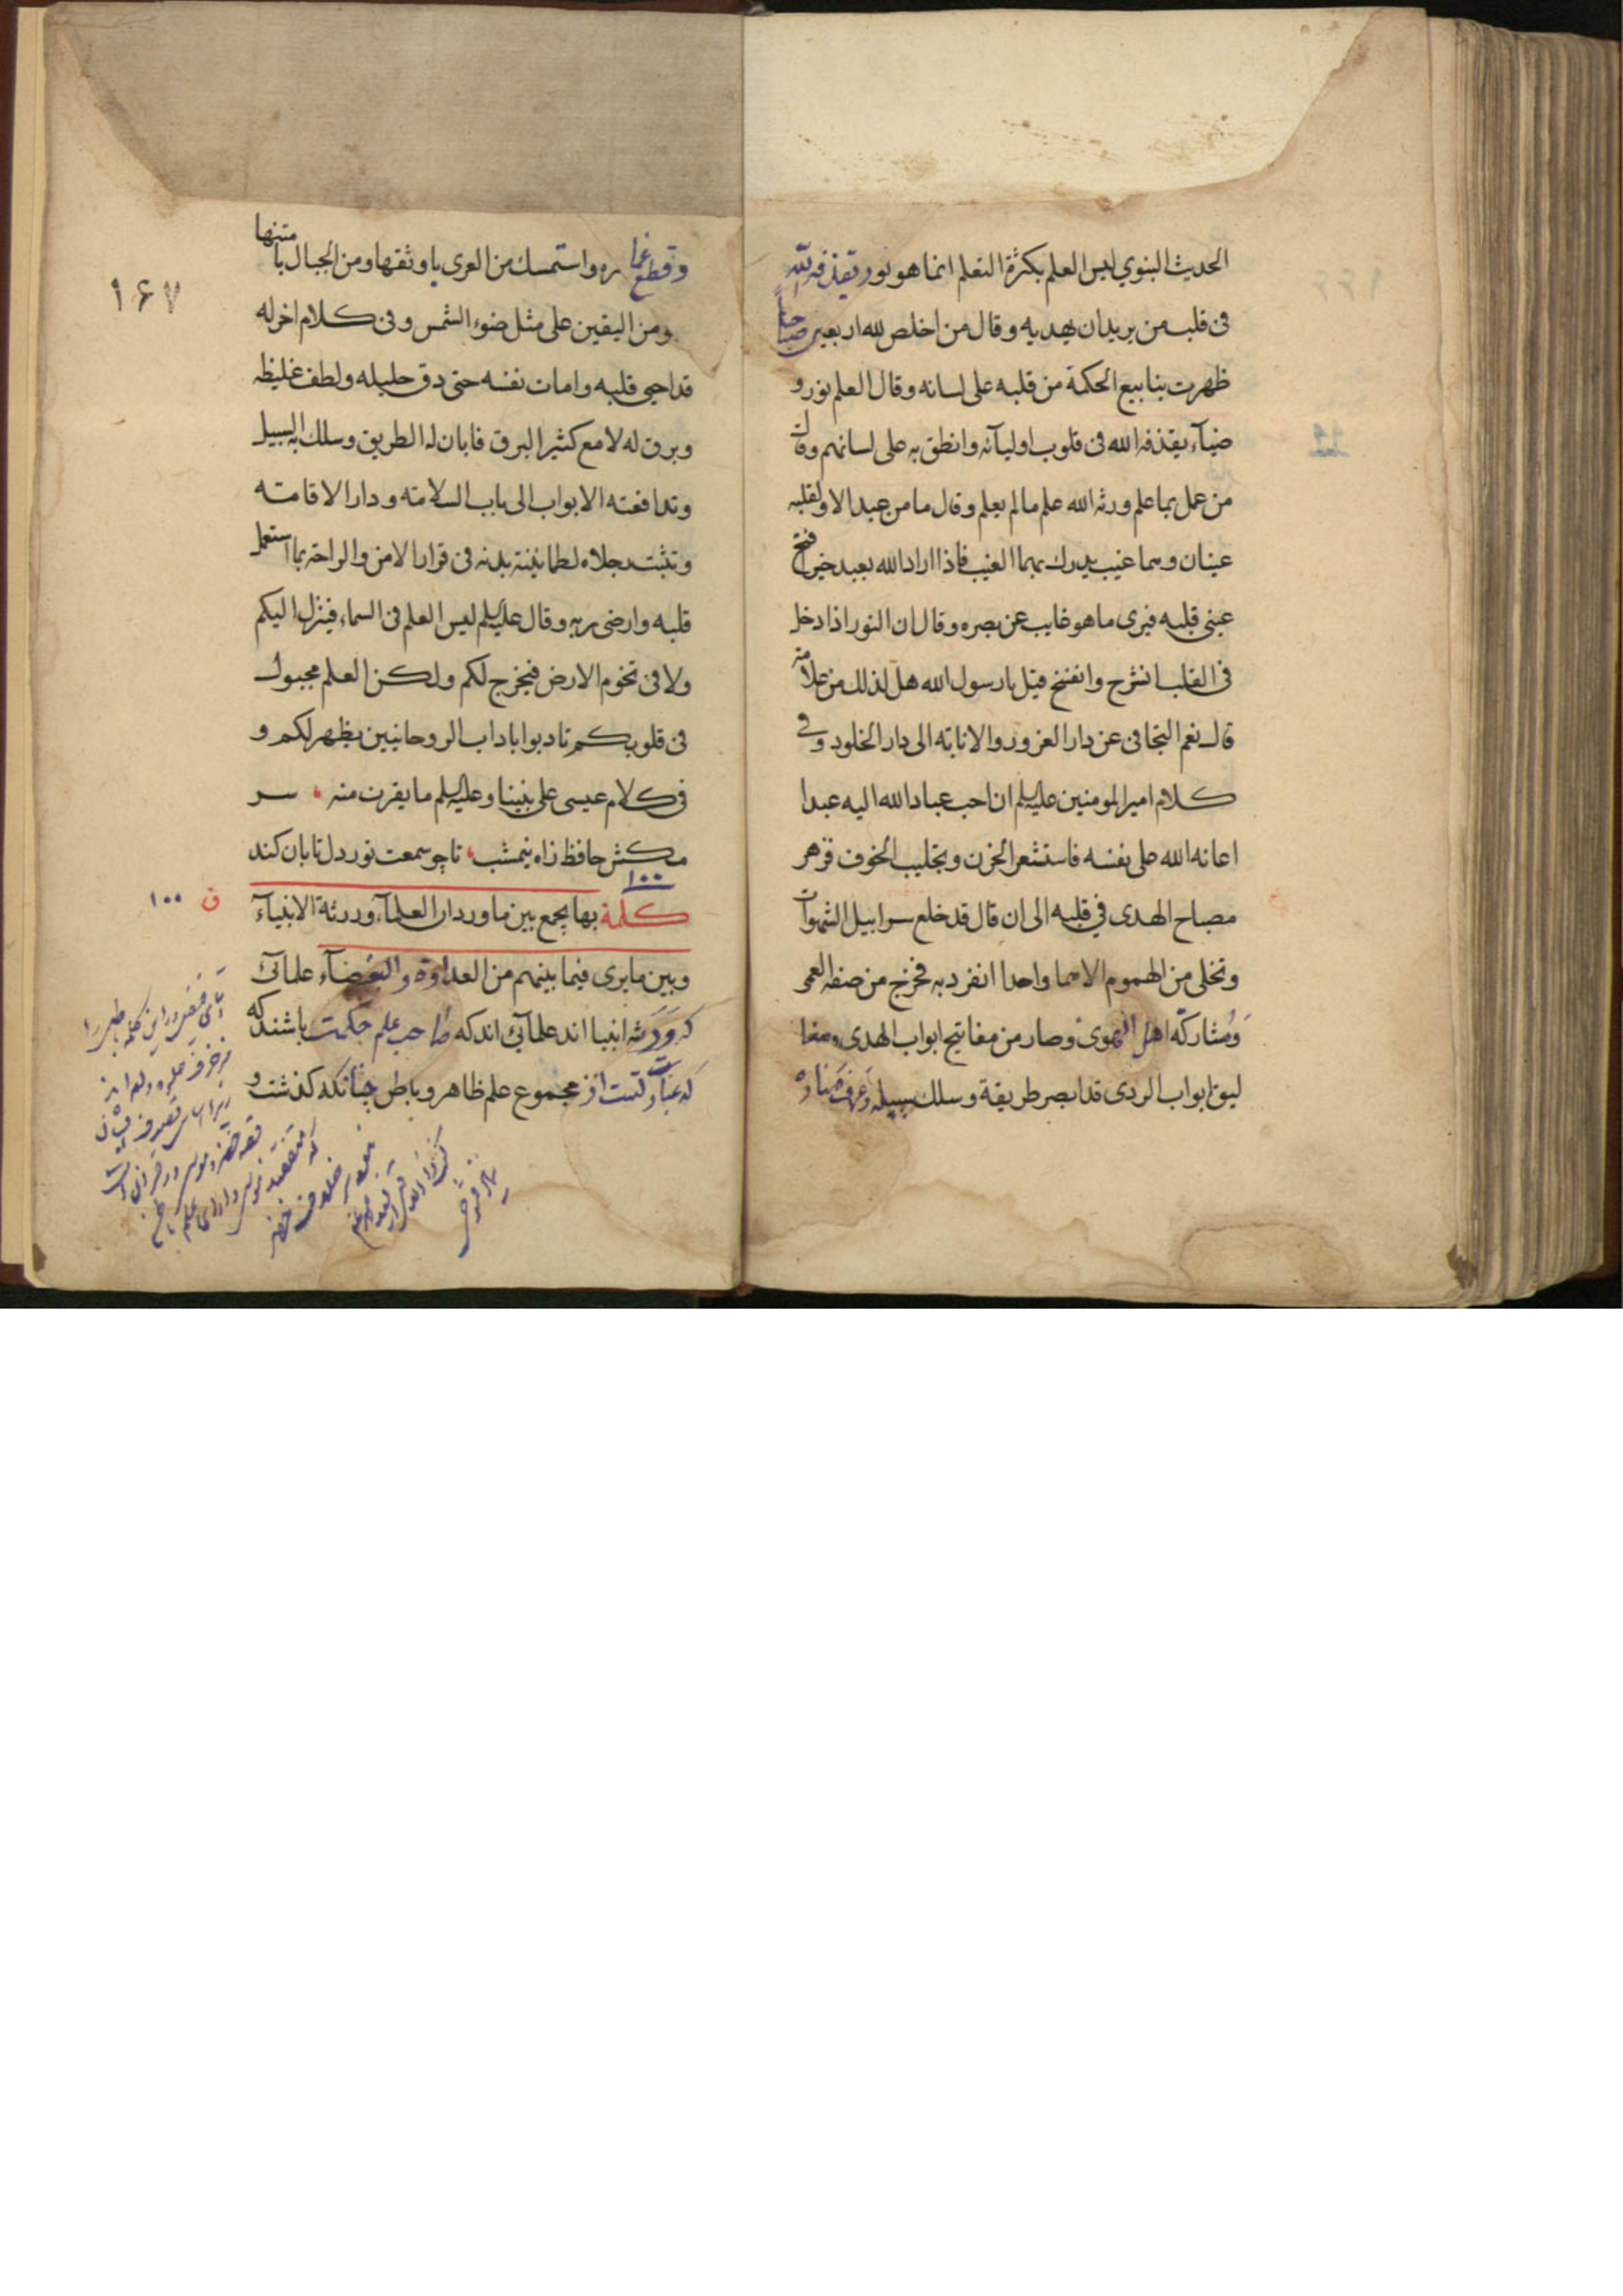 الحديث النبوي ليس العلم بكثرة التعلم انما هو نور يقذفه الله
فى قلب من يريد ان يهديه وقال من اخلص لله اربعين صباحاً
ظهرت ينابيع الحكمة من قلبه على لسانه وقال العلم نور و
ضيآء يقذفه الله فى قلوب اوليآئه وانطق به على لسانهم وقال
من عمل بما علم ورثه الله علم ما لم يعلم وقال ما من عبد الا ولقلبه
عينان وهما غيب يدرك بهما الغيب فاذا اراد الله بعبد خير فتح
عينى قلبه فيرى ما هو غايب عن بصره وقال ان النور اذا دخل
فى القلب انشرح وانفسح قيل يا رسول الله هل لذلك من علامة
قال نعم التجافى عن دار الغرور والانابة الى دار الخلود وفي
كلام امير المومنين عليه السلم ان احب عباد الله اليه عبدا
اعانه الله على نفسه فاستشعر الحزن وتجلبب الخوف فزهر
مصباح الهدى في قلبه الى ان قال قد خلع سرابيل الشهوات
وتخلى من الهموم الا هما واحدا انفرد به فخرج من صفه العمى
وَمُشاركة اهل الهوى وصار من مفاتيح ابواب الهدى ومغا
ليق ابواب الردى قد ابصر طريقة وسلك سبيله وَعَرَفَ مَناره
١٦٧
وقطع غما ره واستمسك من العرى باوثقها ومن الجبال بامتنها
ومن اليقين على مثل ضوء الشمس وفى كلام اخر له
قد احيى قلبه وامات نفسه حتى دق جليله ولطف غليظه
وبرق له لامع كثير البرق فابان له الطريق وسلك به السبيل
وتدافعته الابواب الى باب السلامة ودار الاقامته
وتثبت رجلاه لطمانينة بدنه فى قرار الامن والراحة بما استعمل
قلبه وارضى ربه وقال عليه السلم ليس العلم فى السماء فينزل اليكم
ولا فى تخوم الارض فيخرج لكم ولكن العلم مجبول
فى قلوبكم تادبوا باداب الروحانيين يظهر لكم و
فى كلام عيسى على نبينا وعليه السلم ما يقرب منه سر
مكش حافظ زاه نيمشب تا چو سمعت نور دل تابان كند
١٠٠
كلمة بها يجمع بين ما ورد ان العلمآء ورثة الانبيآء
ق ١٠٠
وبين ما يرى فيما بينهم من العداوة والبغضآء علمائى
كه وَرَثه انبيا اند علمائى اند كه صاحب علم حكمت باشند كه
كه عبارتست از مجموع علم ظاهر وباطن چنانكه گذشت و